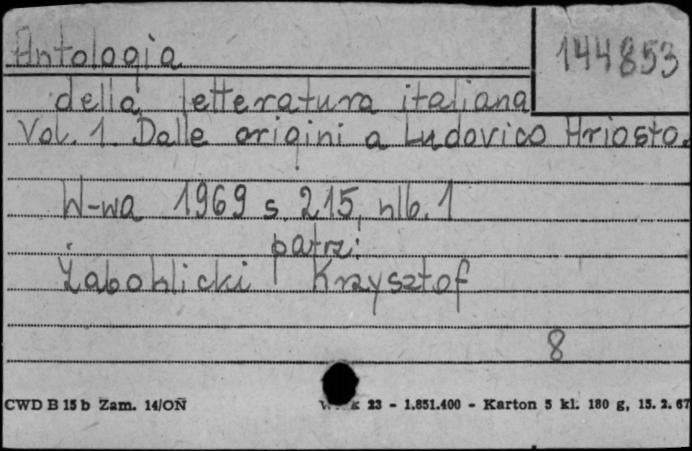 Antologia
144853
della letteratura italiana
Vol. 1. Dalle origini a Ludovico Ariosto.
W-wa 1969 s. 215, nlb. 1
patrz:
Żaboklicki Krzysztof
8
CWD B 15 b Zam. 14/ON 23 - 1.851.400 - Karton 5 kl. 180 g, 15. 2. 67